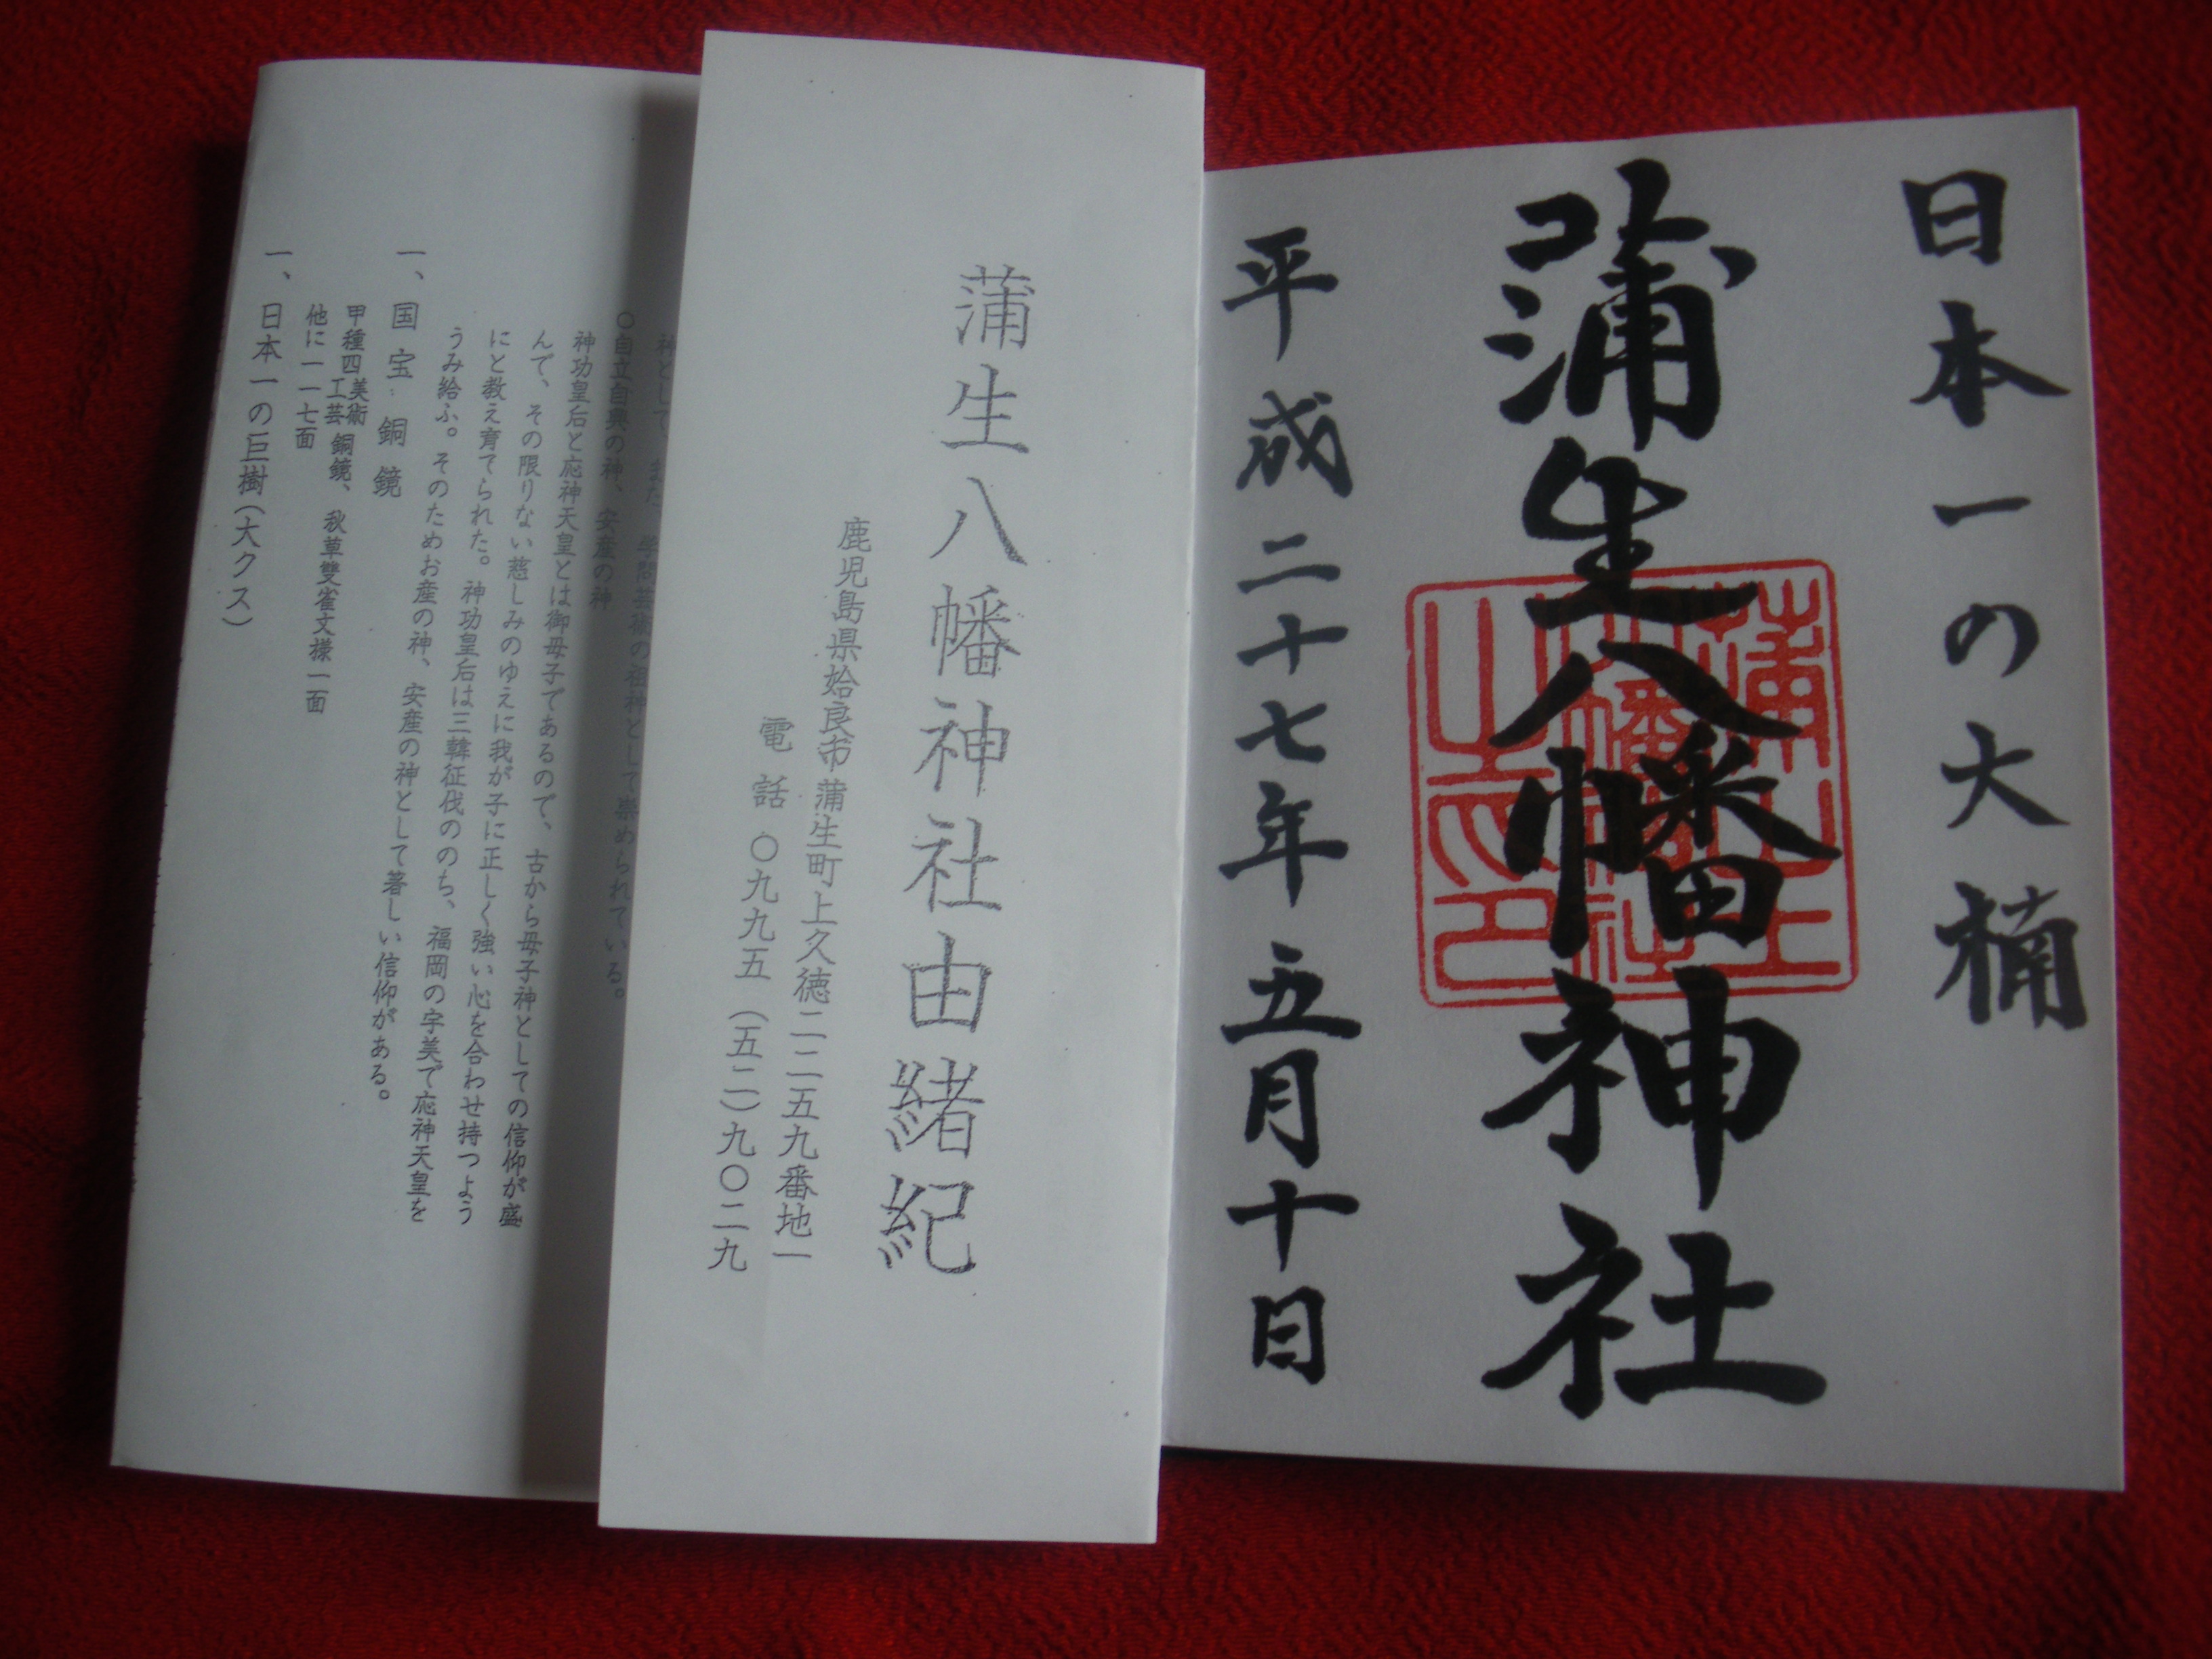 日本一の大楠
蒲生八幡神社
平成二十七年五月十日
蒲生八幡神社由緒紀
鹿児島県姶良市蒲生町上久徳二二五九番地一
電話 〇九九五(五二)九〇二九
学問芸術の祖神として崇められている。
〇自立自興の神、安産の神
神功皇后と応神天皇とは御母子であるので、古から母子神としての信仰が盛
んで、その限りない慈しみのゆえに我が子に正しく強い心を合わせ持つよう
にと教え育てられた。神功皇后は三韓征伐ののち、福岡の宇美で応神天皇を
うみ給ふ。そのためお産の神、安産の神として著しい信仰がある。
一、国宝 銅鏡
甲種四美術工芸 銅鏡、秋草雙雀文様一面
他に一一七面
一、日本一の巨樹(大クス)